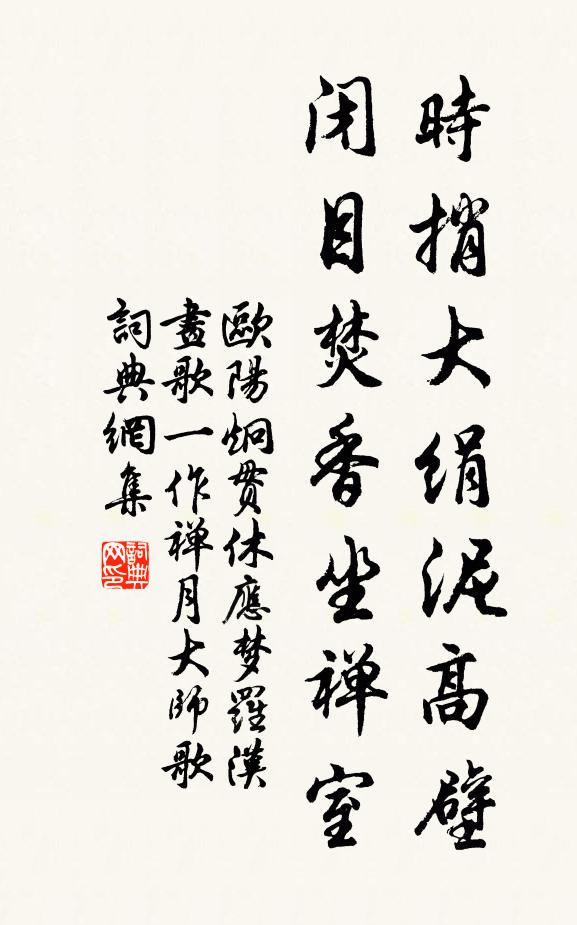 時捎大絹泥高壁
闭目焚香坐禅室
歐陽炯貫休應梦羅漢
畫歌一作禅月大師歌
詞典網集
詞典
网印